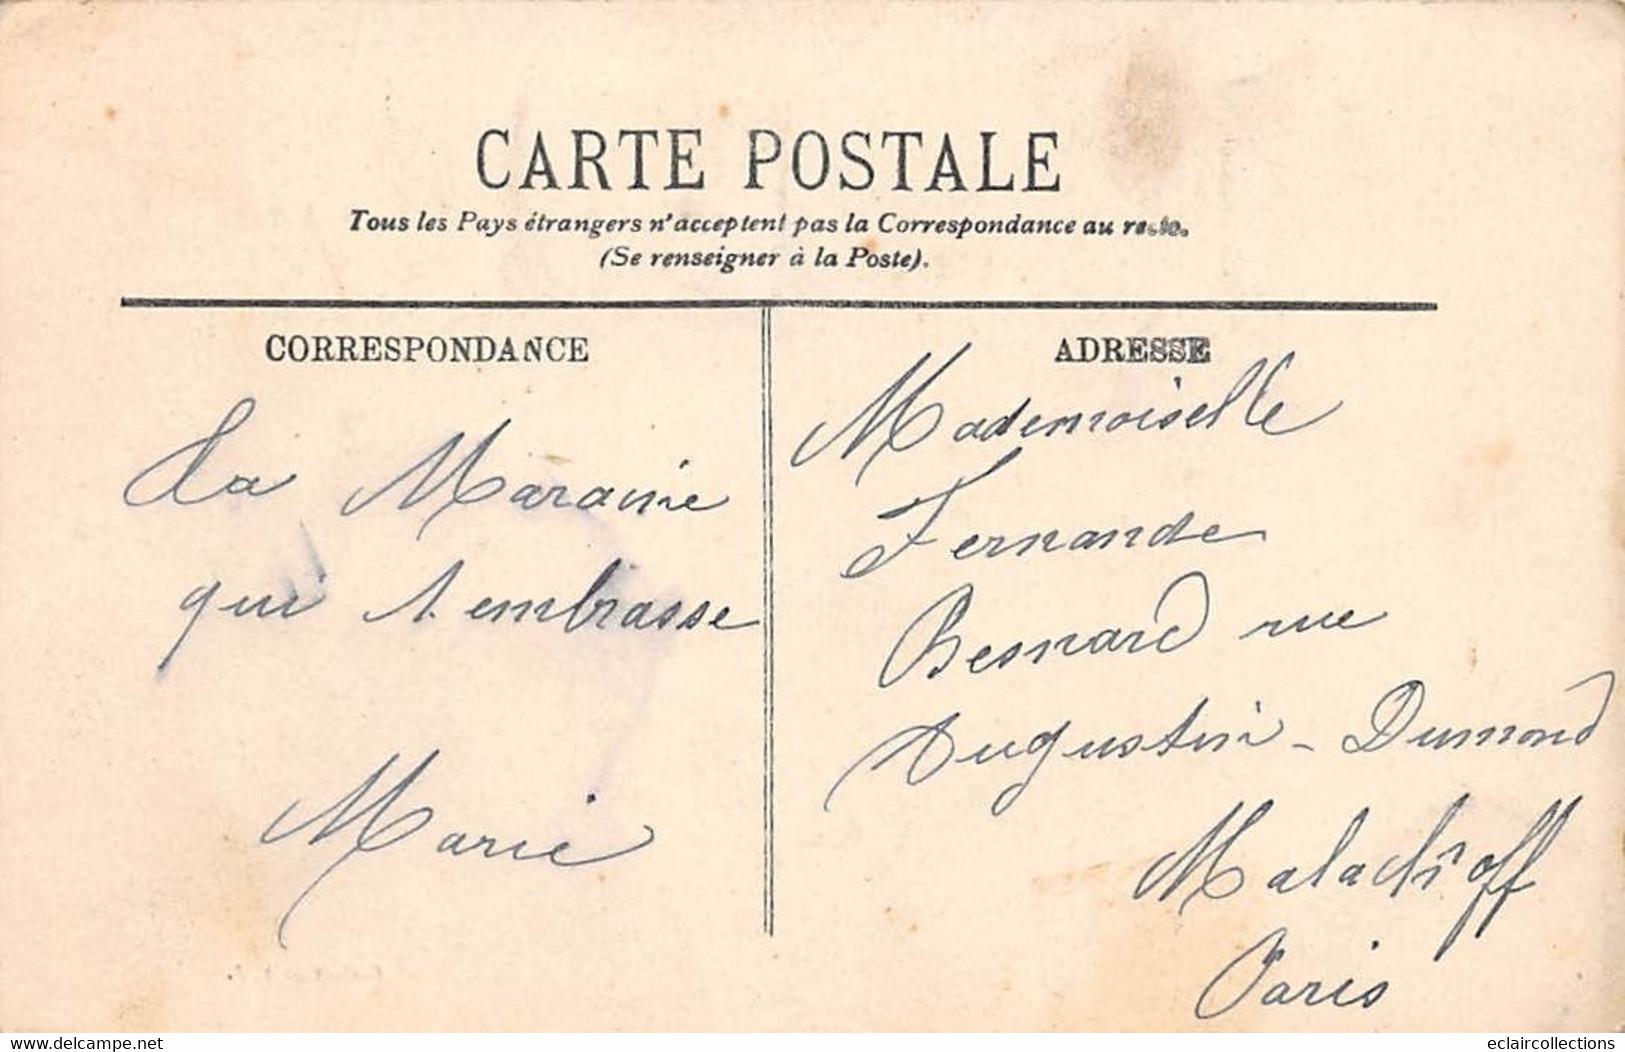 CARTE POSTALE
Tous les Pays étrangers n'acceptent pas la Correspondance au recto.
(Se renseigner à la Poste).
CORRESPONDANCE
La Maraine
qui t embrasse
Marie
ADRESSE
Mademoiselle
Fernande
Besnard rue
Augustin - Dumond
Malachoff
Paris
www.delcampe.net
eclaircollections